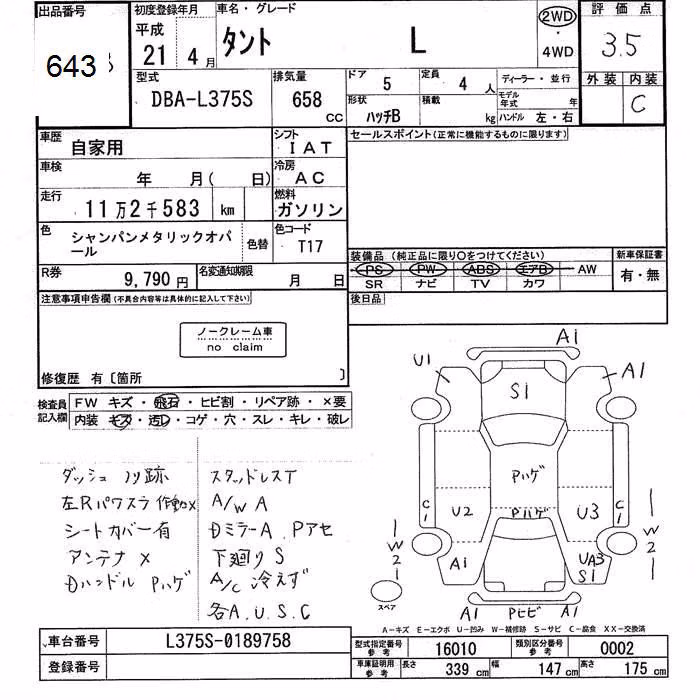 出品番号
643
初度登録年月
平成
21 4 月
車名・グレード
タント L
2WD
・
4WD
評価点
3.5
外装 内装
C
型式
DBA-L375S
排気量
658 CC
ドア 5
定員 4 人
形状 ハッチB
積載 kg
ディーラー・並行
モデル年式 年
ハンドル 左・右
車歴 自家用
シフト IAT
セールスポイント(正常に機能するものに限ります)
車検 年 月( 日)
冷房 AC
走行 11万2千583 km
燃料 ガソリン
色 シャンパンメタリックオパール
色替
色コード T17
装備品 (純正品に限り○をつけてください)
PS PW ABS エアB AW
SR ナビ TV カワ
新車保証書
有・無
R券 9,790 円
名変通知期限 月 日
後日品
注意事項申告欄(不具合内容等は具体的に記入して下さい)
ノークレーム車
no claim
修復歴 有〔箇所 〕
検査員記入欄
FW キズ・飛石・ヒビ割・リペア跡・×要
内装 キズ・汚レ・コゲ・穴・スレ・キレ・破レ
ダッシュ ノリ跡
左Rパワスラ 作動×
シートカバー有
アンテナ ×
Dハンドル Pハゲ
スタッドレスT
A/W A
Dミラー A. Pアセ
下廻り S
A/C 冷えず
各A.U.S.C
A1
U1
A1
S1
Pハゲ
Pハゲ
C1
U2
U3
C1
W2
W2
A1
UA3
S1
スペア
A1 Pヒビ A1
A－キズ E－エクボ U－凹み W－補修跡 S－サビ C－腐食 XX－交換済
車台番号 L375S-0189758
登録番号
型式指定番号 参考 16010
類別区分番号 参考 0002
車庫証明用 参考
長さ 339 cm
幅 147 cm
高さ 175 cm